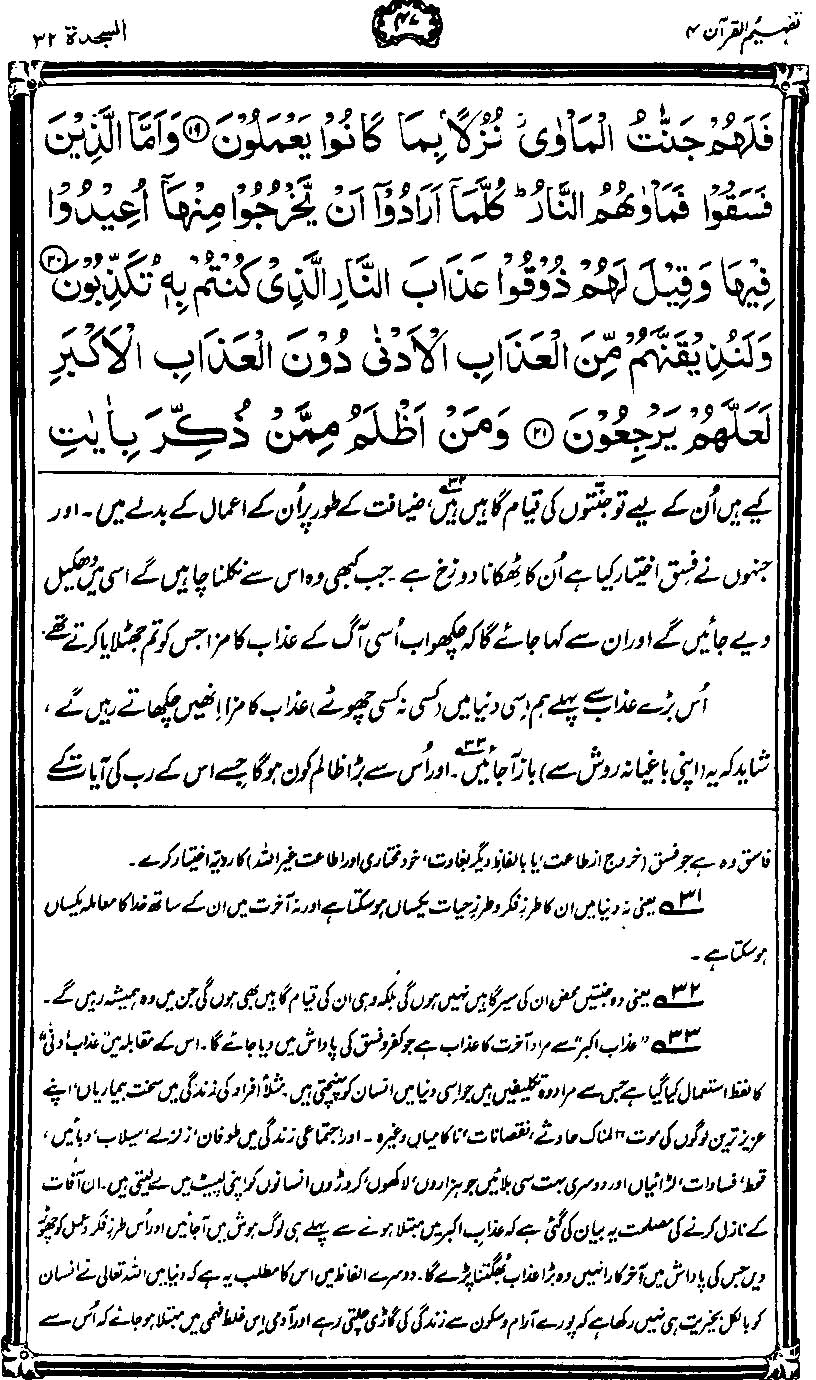 تفہیم القرآن ۴
۴۷
السجدة ۳۲
فَلَهُمْ جَنّٰتُ الْمَاْوٰى نُزُلًۢا بِمَا كَانُوْا يَعْمَلُوْنَ ۱۹ وَاَمَّا الَّذِيْنَ
فَسَقُوْا فَمَاْوٰىهُمُ النَّارُ ؕ كُلَّمَاۤ اَرَادُوْۤا اَنْ يَّخْرُجُوْا مِنْهَاۤ اُعِيْدُوْا
فِيْهَا وَقِيْلَ لَهُمْ ذُوْقُوْا عَذَابَ النَّارِ الَّذِىْ كُنْتُمْ بِهٖ تُكَذِّبُوْنَ ۲۰
وَلَنُذِيْقَنَّهُمْ مِّنَ الْعَذَابِ الْاَدْنٰى دُوْنَ الْعَذَابِ الْاَكْبَرِ
لَعَلَّهُمْ يَرْجِعُوْنَ ۲۱ وَمَنْ اَظْلَمُ مِمَّنْ ذُكِّرَ بِاٰيٰتِ
کیے ہیں اُن کے لیے تو جنّتوں کی قیام گاہیں ہیں۳۲، ضیافت کے طور پر اُن کے اعمال کے بدلے میں۔ اور
جنہوں نے فسق اختیار کیا ہے اُن کا ٹھکانا دوزخ ہے۔ جب کبھی وہ اس سے نکلنا چاہیں گے اسی میں دھکیل
دیے جائیں گے اور ان سے کہا جائے گا کہ چکھو اب اُسی آگ کے عذاب کا مزا جس کو تم جھٹلایا کرتے تھے۔
اُس بڑے عذاب سے پہلے ہم اِسی دنیا میں (کسی نہ کسی چھوٹے) عذاب کا مزا اِنھیں چکھاتے رہیں گے،
شاید کہ یہ (اپنی باغیانہ روش سے) باز آجائیں۳۳۔ اور اُس سے بڑا ظالم کون ہوگا جسے اس کے رب کی آیات کے
فاسق وہ ہے جو فسق (خروج از طاعت، یا بالفاظ دیگر بغاوت، خود مختاری اور اطاعت غیر اللہ) کا رویّہ اختیار کرے۔
۳۱ یعنی نہ دنیا میں ان کا طرزِ فکر و طرزِ حیات یکساں ہو سکتا ہے اور نہ آخرت میں ان کے ساتھ خدا کا معاملہ یکساں
ہو سکتا ہے۔
۳۲ یعنی وہ جنتیں محض ان کی سیر گاہیں نہیں ہوں گی بلکہ وہی ان کی قیام گاہیں بھی ہوں گی جن میں وہ ہمیشہ رہیں گے۔
۳۳ "عذاب اکبر" سے مراد آخرت کا عذاب ہے جو کفر و فسق کی پاداش میں دیا جائے گا۔ اس کے مقابلہ میں "عذاب ادنیٰ"
کا لفظ استعمال کیا گیا ہے جس سے مراد وہ تکلیفیں ہیں جو اسی دنیا میں انسان کو پہنچتی ہیں۔ مثلاً افراد کی زندگی میں سخت بیماریاں، اپنے
عزیز ترین لوگوں کی موت، المناک حادثے، نقصانات، ناکامیاں وغیرہ۔ اور اجتماعی زندگی میں طوفان، زلزلے، سیلاب، وبائیں،
قحط، فسادات، لڑائیاں اور دوسری بہت سی بلائیں جو ہزاروں، لاکھوں، کروڑوں انسانوں کو اپنی لپیٹ میں لے لیتی ہیں۔ ان آفات
کے نازل کرنے کی مصلحت یہ بیان کی گئی ہے کہ عذاب اکبر میں مبتلا ہونے سے پہلے ہی لوگ ہوش میں آجائیں اور اُس طرز فکر و عمل کو چھوڑ
دیں جس کی پاداش میں آخرکار انہیں وہ بڑا عذاب بھگتنا پڑے گا۔ دوسرے الفاظ میں اس کا مطلب یہ ہے کہ دنیا میں اللہ تعالیٰ نے انسان
کو بالکل بخیریت ہی نہیں رکھا ہے کہ پورے آرام و سکون سے زندگی کی گاڑی چلتی رہے اور آدمی اِس غلط فہمی میں مبتلا ہو جائے کہ اُس سے